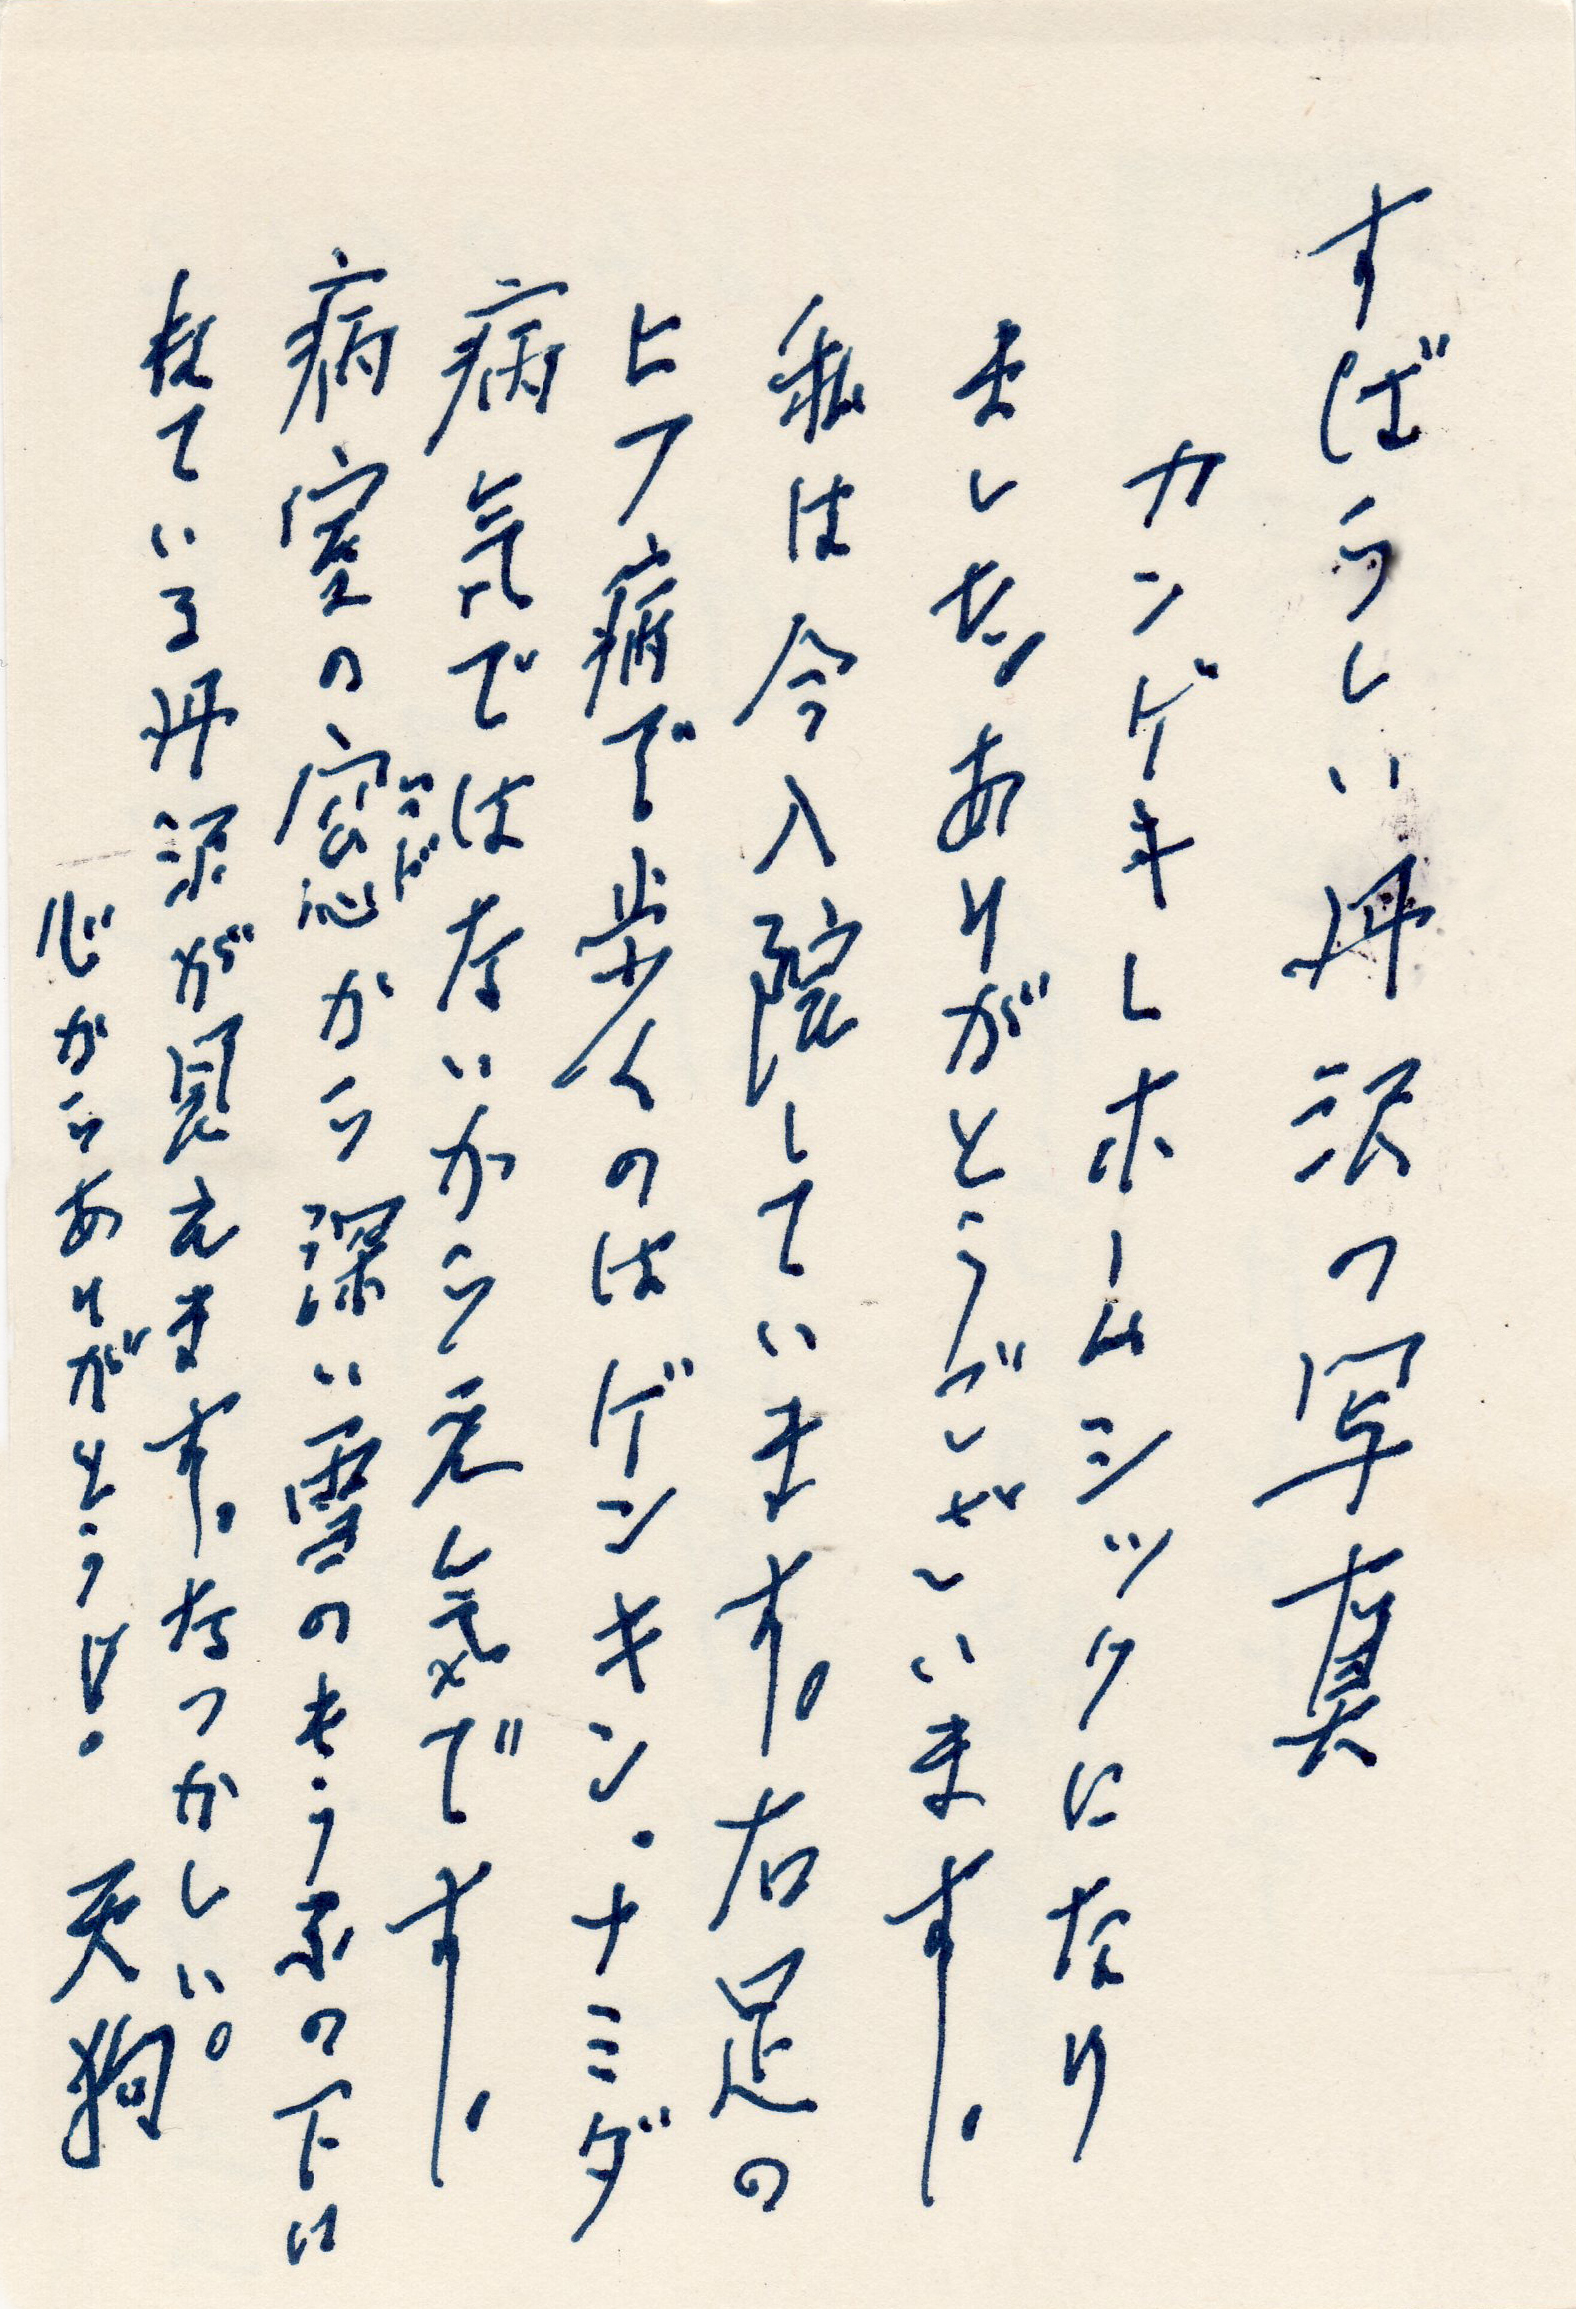 すばらしい丹沢の写真
カンゲキしホームシックになり
ましたッありがとうございます。
私は今入院しています。右足の
ヒフ病で歩くのはゲンキン.ナミダ
病気ではないから元気です。
病室の窓マドから深い雪のもうふの下に
ている丹沢が見えます。なつかしい。
心からありがとうと!
天狗